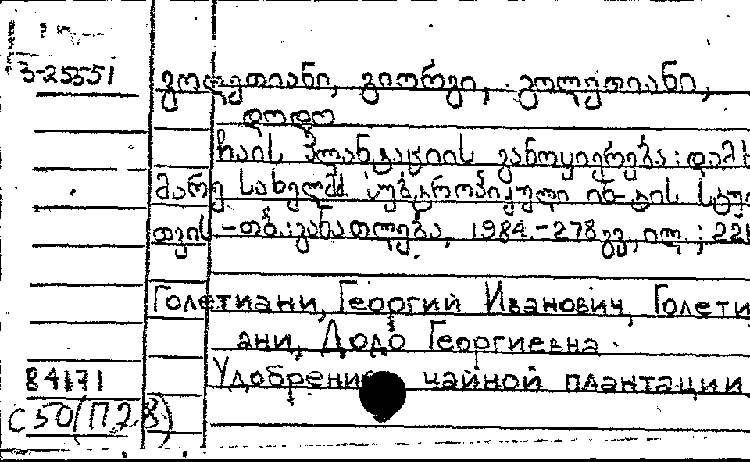 3-25551
გოლეთიანი, გიორგი, გოლეთიანი,
დოდო
ჩაის პლანტაციის განოყიერება: დამხ
მარე სახელმძ სუბტროპიკული ინ-ტის სტუ
თვის -თბ.: განათლება, 1984.-278 გვ, ილ.; 22
Голетиани, Георгий Иванович, Голети
ани, Додо Георгиевна
84171 Удобрение чайной плантации
С50(П2.8)